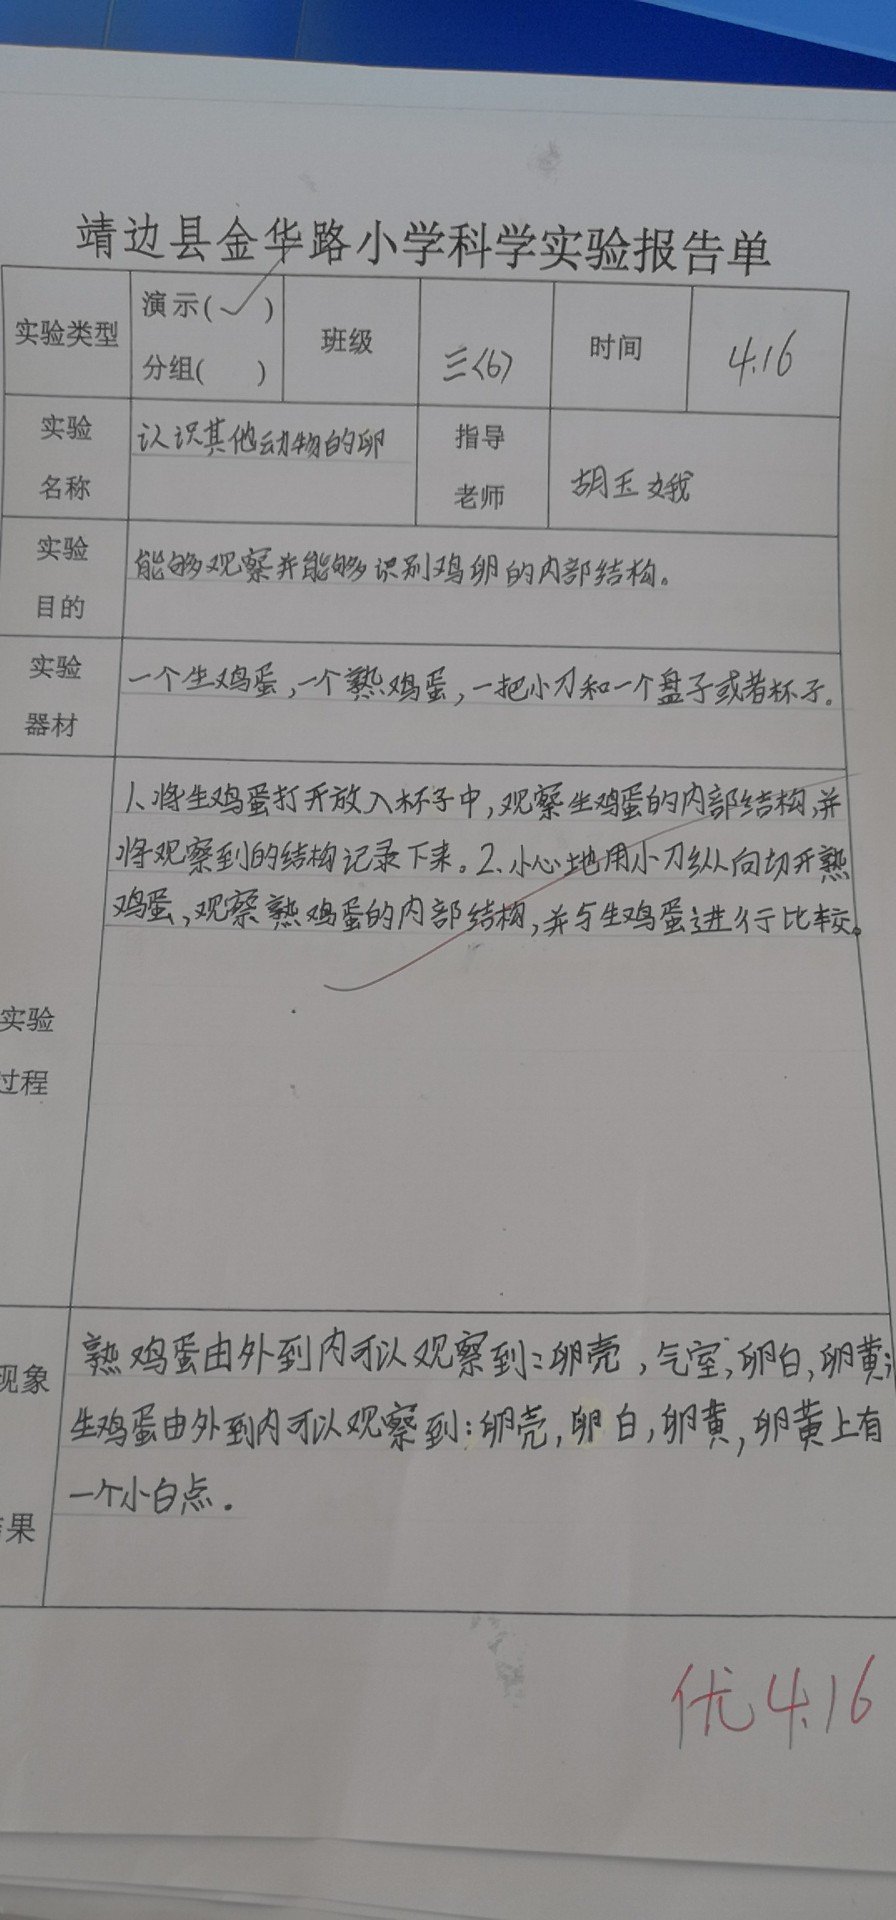 靖边县金华路小学科学实验报告单
实验类型
演示(✓)
分组( )
班级
三(6)
时间
4.16
实验
名称
认识其他动物的卵
指导
老师
胡玉娥
实验
目的
能够观察并能够识别鸡卵的内部结构。
实验
器材
一个生鸡蛋,一个熟鸡蛋,一把小刀和一个盘子或者杯子。
实验
过程
1、将生鸡蛋打开放入杯子中,观察生鸡蛋的内部结构,并
将观察到的结构记录下来。2、小心地用小刀纵向切开熟
鸡蛋,观察熟鸡蛋的内部结构,并与生鸡蛋进行比较。
现象
果
熟鸡蛋由外到内可以观察到:卵壳,气室,卵白,卵黄;
生鸡蛋由外到内可以观察到:卵壳,卵白,卵黄,卵黄上有
一个小白点.
优 4.16